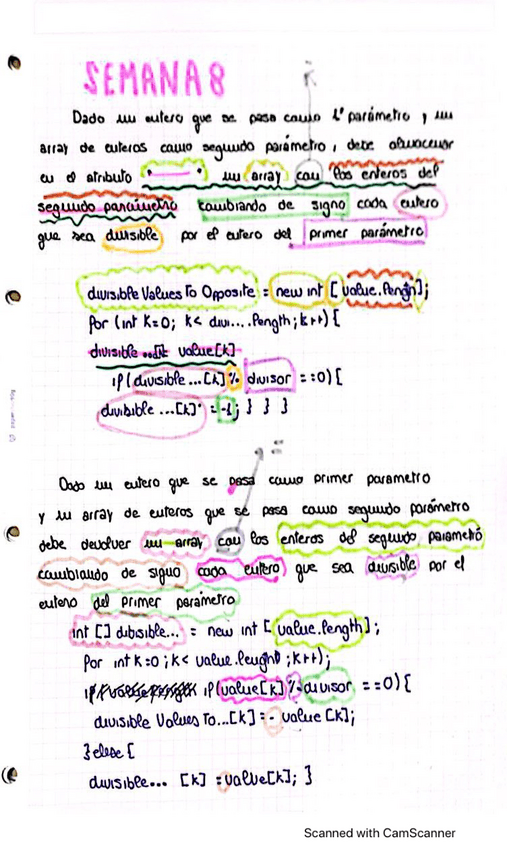 SEMANA 8
Dado un entero que se pasa como 1º parámetro y un
array de enteros como segundo parámetro, debe almacenar
en el atributo "-" un array con los enteros del
segundo parámetro cambiando de signo cada entero
que sea divisible por el entero del primer parámetro
divisible Values To Opposite = new int [value.length];
for (int K=0; K< divi....length; K++) {
divisible ... [k] value[k]
if (divisible ...[k] % divisor ==0) {
divibible ...[k]* =-1; } } }
Dado un entero que se pasa como primer parametro
y un array de enteros que se pasa como segundo parámetro
debe devolver un array con los enteros del segundo parametró
cambiando de signo cada entero que sea divisible por el
entero del primer parámetro
int [] dibisible... = new int [value.length];
for int K=0; K< value.lenght; K++);
if (value[k] % divisor ==0) {
divisible Values To...[k] = - value [k];
} else {
divisible... [k] = value[k]; }
Scanned with CamScanner